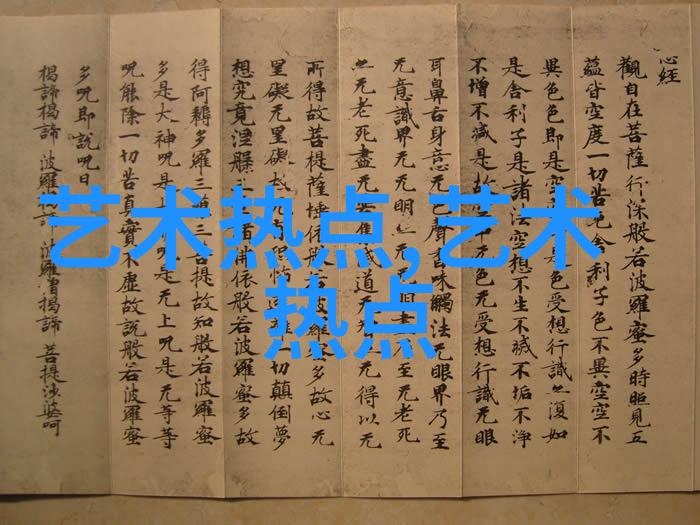 心经
觀自在菩薩行深般若波羅蜜多時照見五
蘊皆空度一切苦厄舍利子色不異空空不
異色色即是空是色受想行識亦復如
是舍利子是諸法空想不生不滅不垢不淨
不增不減是故中无色无受想行識无眼
耳鼻舌身意无色聲香味觸法无眼界乃至
无意識界无无明亦无无明乃至无老死
亦无老死盡无集道无得以无
所得故菩提薩埵依般若波羅蜜多故心无
罣礙无罣礙故无有恐怖遠離一切顛倒夢
想究竟涅槃諸佛依般若波羅蜜多故
得阿耨多羅三三菩提故知般若波羅蜜
多是大神咒是上咒是无上咒是无等等
咒能除一切苦真實不虛故說般若波羅蜜
多咒即說咒曰
揭諦揭諦 波羅揭諦 波羅僧揭諦 菩提莎婆呵
艺术热点,艺术
热点